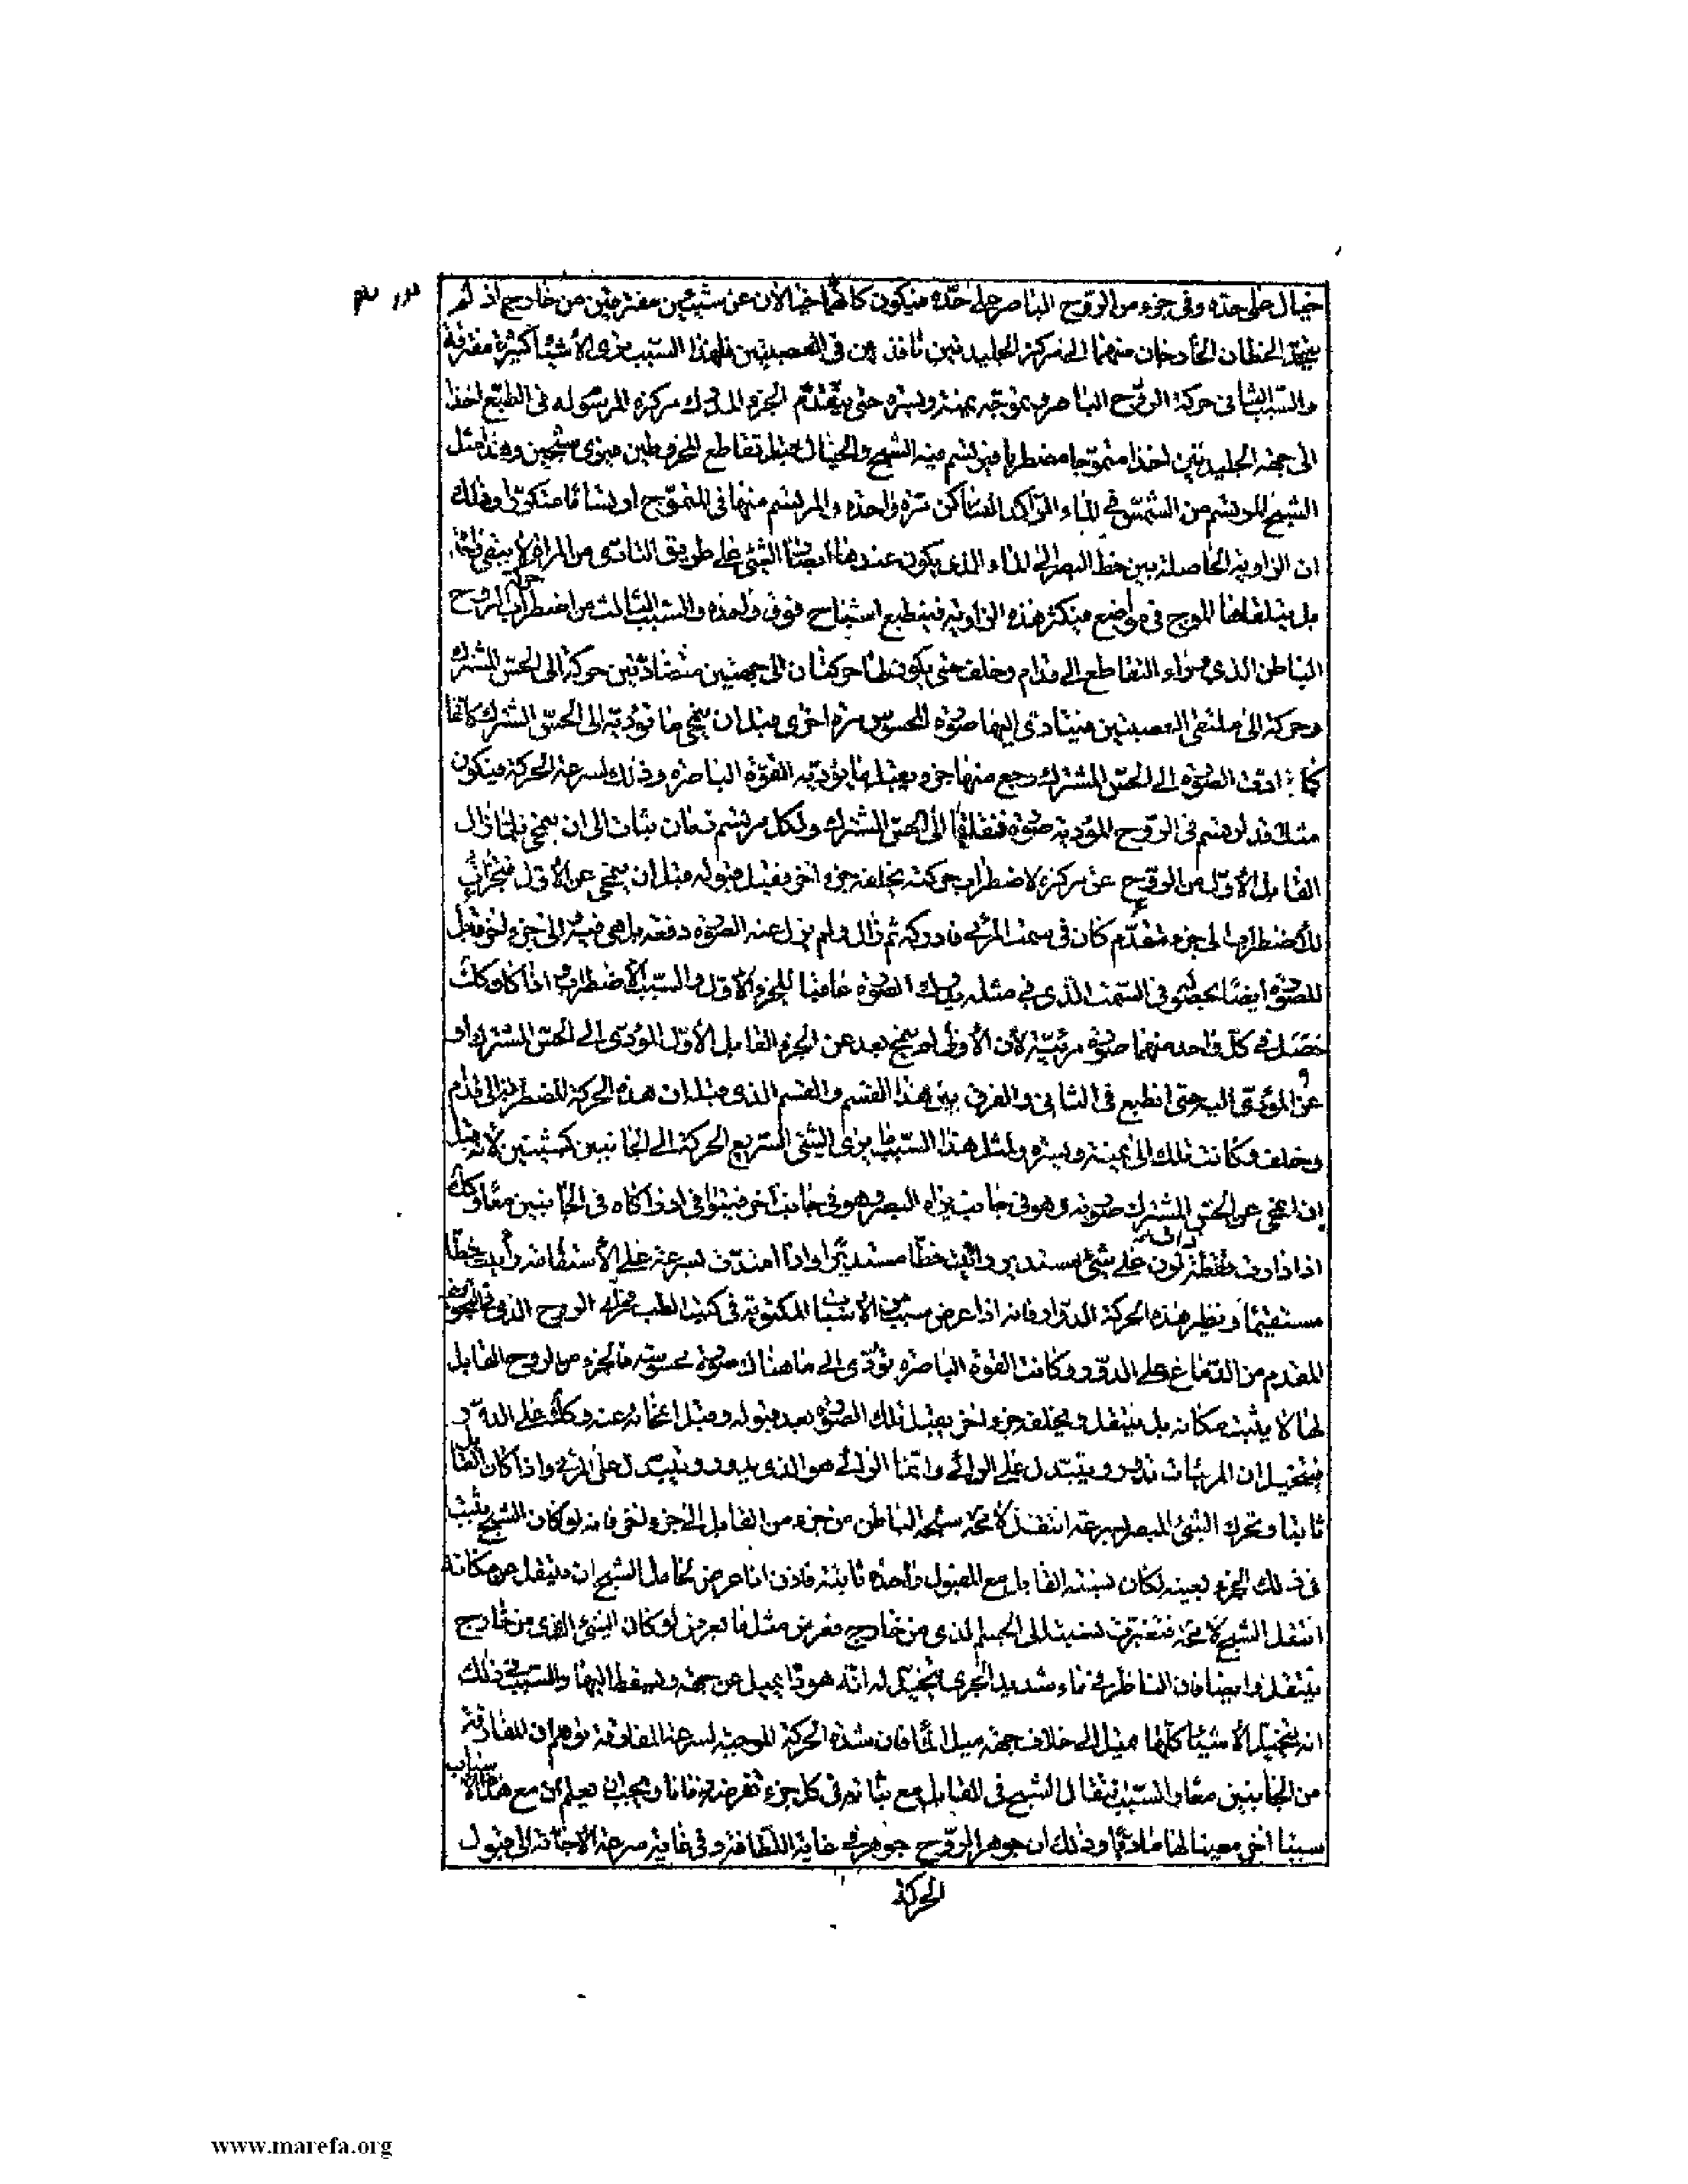 خيال على حدّه وفى جزء من الروّح الباصر على حدّه فيكون كانّهما خيالان عن شيئين مفترقين من خارج اذ لم
يتّحد الخطان الخارجان منهما الى مركز الجليديتين نافذين فى العصبتين فلهذا السّبب نرى الأشياء كثيرة متفرقة
والسّبب الثانى حركة الروّح الباصر وتموّجه يمنة ويسرة حتى يتقدّم الجزء المدرك مركزه المرسوم له فى الطبع اخذا
الى جهة الجليديتين اخذا متموّجا مضطربا فيرتسم فيه الشبح والخيال قبل تقاطع المخروطين فيرى شبحين وهذا مثل
الشبح المرتسم من الشمس فى الماء الراكد الساكن مرّة واحدة والمرتسم منها فى المتموّج ارتساما متكررا وذلك
ان الزاوية الحاصلة بين خط البصر الى الماء الذى يكون عندها ابصار الشئ على طريق التادّى من المرآة لا يبقى ثابتا
بل يتلقاها الموج فى مواضع فيكثر هذه الزاوية فينطبع اشباح فوق واحدة والسّبب الثالث من اضطراب حركة الروح
الباطن الذى وراء التقاطع الى قدام وخلف حتى يكون لها حركتان الى جهتين متضادّتين حركة الى الحسّ المشترك
وحركة الى ملتقى العصبتين فيتادى اليها صورة المحسوس مرة اخرى قبل ان ينمحى ما تؤديه الى الحسّ المشترك كأنّها
كما ادّت الصّورة الى الحسّ المشترك رجع منها جزء يقبل ما يؤدّيه القوّة الباصرة وذلك لسرعة الحركة فيكون
مثلا قد ارتسم فى الروّح المؤدية صورة فنقلتها الى الحسّ المشترك ولكل مرتسم زمان ثبات الى ان ينمحى فلمّا زال
القابل الأوّل من الروّح عن مركزه لاضطراب حركته يخلفه جزء اخر فقبل قبوله قبل ان ينمحى عن الأول فتجزأت
للأضطراب الى جزء متقدّم كان فى سمت المرئى فادركه ثم زال ولم يزل عنه الصّورة دفعة بل هى فيه والى جزء اخر قابل
للصّورة ايضا بحصوله فى السّمت الذى فى مثله يدرك الصّورة عاقبا للجزء الأوّل والسّبب الأضطراب اذا كان كك
حصل فى كلّ واحد منهما صورة مرئيّة لأن الأولى لم تنمح بعد عن الجزء القابل الأوّل المؤدى الى الحسّ المشترك او
عن المؤدّى اليه حتى انطبع فى الثانى والفرق بين هذا القسم والقسم الذى قبله ان هذه الحركة المضطربة الى قدام
وخلف وكانت تلك الى يمنة ويسرة ولمثل هذا السّبب ما يرى الشئ السّريع الحركة الى الجانبين كشيئين لأنه قبل
ان انمحى عن الحس المشترك صورته وهو فى جانب يراه البصر وهو فى جانب اخر فيتوافى ادراكاه فى الجانبين معا وكك
اذا دارت نقطة ذات لون على شئ مستدير رأيت خطّا مستديرا واذا امتدّت بسرعة على الأستقامة رأيت خطّا
مستقيما ونظير هذه الحركة الدوار فانه اذا عرض سبب من الأسباب المكتوبة فى كتب الطب فحرك الروح الذى فى التجويف
المقدم من الدّماغ على الدوّر وكانت القوّة الباصرة تؤدّى الى ما هناك صورة محسوسة فالجزء من الروح القابل
لها لا يثبت مكانه بل ينتقل ويخلفه جزء اخر يقبل تلك الصّورة بعد قبوله وقبل انمحائه عنه وكك على الدوّر
فيتخيل ان المرئيات تدور ويتبدل على الرائى وانما الرائى هو الذى يدور ويتبدل على المرئى واذا كان القابل
ثابتا وتحرك الشئ المبصر بسرعة انتقل لا محة شبحه الباطن من جزء من القابل الى جزء اخر فانه لو كان الشبح يثبت
فى ذلك الجزء بعينه لكان نسبة القابل مع المقبول واحدة ثابتة فاذن اذا عرض لحامل الشبح ان ينتقل عن مكانه
انتقل الشبح لا محة فتغيرت نسبته الى الجسم الذى من خارج فعرض مثل ما يعرض لو كان الشئ الذى من خارج
ينتقل وايضا فان الناظر فى ماء شديد الجرى يتخيّل له انّه هو ذا يميل عن جهة ويسقط اليها والسّبب فى ذلك
انه يتخيّل الأشياء كلّها تميل الى خلاف جهة ميل الماء فان شدّة الحركة الموجبة لسرعة المفارقة توهم ان المفارقة
من الجانبين معا والسّبب انتقال الشبح فى القابل مع ثباته فى كل جزء تفرضه زمانا ويجب ان تعلم ان مع هذه الأسباب
سببا اخر معينا لها ماديّا وذلك ان جوهر الروّح جوهر فى غاية اللّطافة وفى غاية سرعة الأجابة الى قبول
الحركة
www.marefa.org